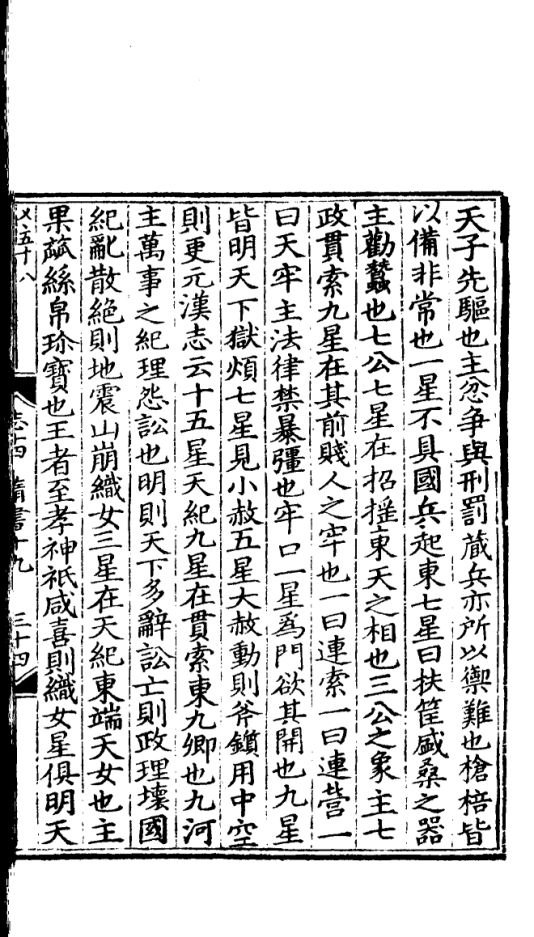 天子先驅也主忿爭與刑罰藏兵亦所以禦難也槍棓皆
以備非常也一星不具國兵起東七星曰扶筐盛桑之器
主勸蠶也七公七星在招搖東天之相也三公之象主七
政貫索九星在其前賤人之牢也一曰連索一曰連營一
曰天牢主法律禁暴彊也牢口一星為門欲其開也九星
皆明天下獄煩七星見小赦五星大赦動則斧鑕用中空
則更元漢志云十五星天紀九星在貫索東九卿也九河
主萬事之紀理怨訟也明則天下多辭訟亡則政理壞國
紀亂散絕則地震山崩織女三星在天紀東端天女也主
果蓏絲帛珍寶也王者至孝神祇咸喜則織女星俱明天
五十八
志十四 隋書十九 三十四